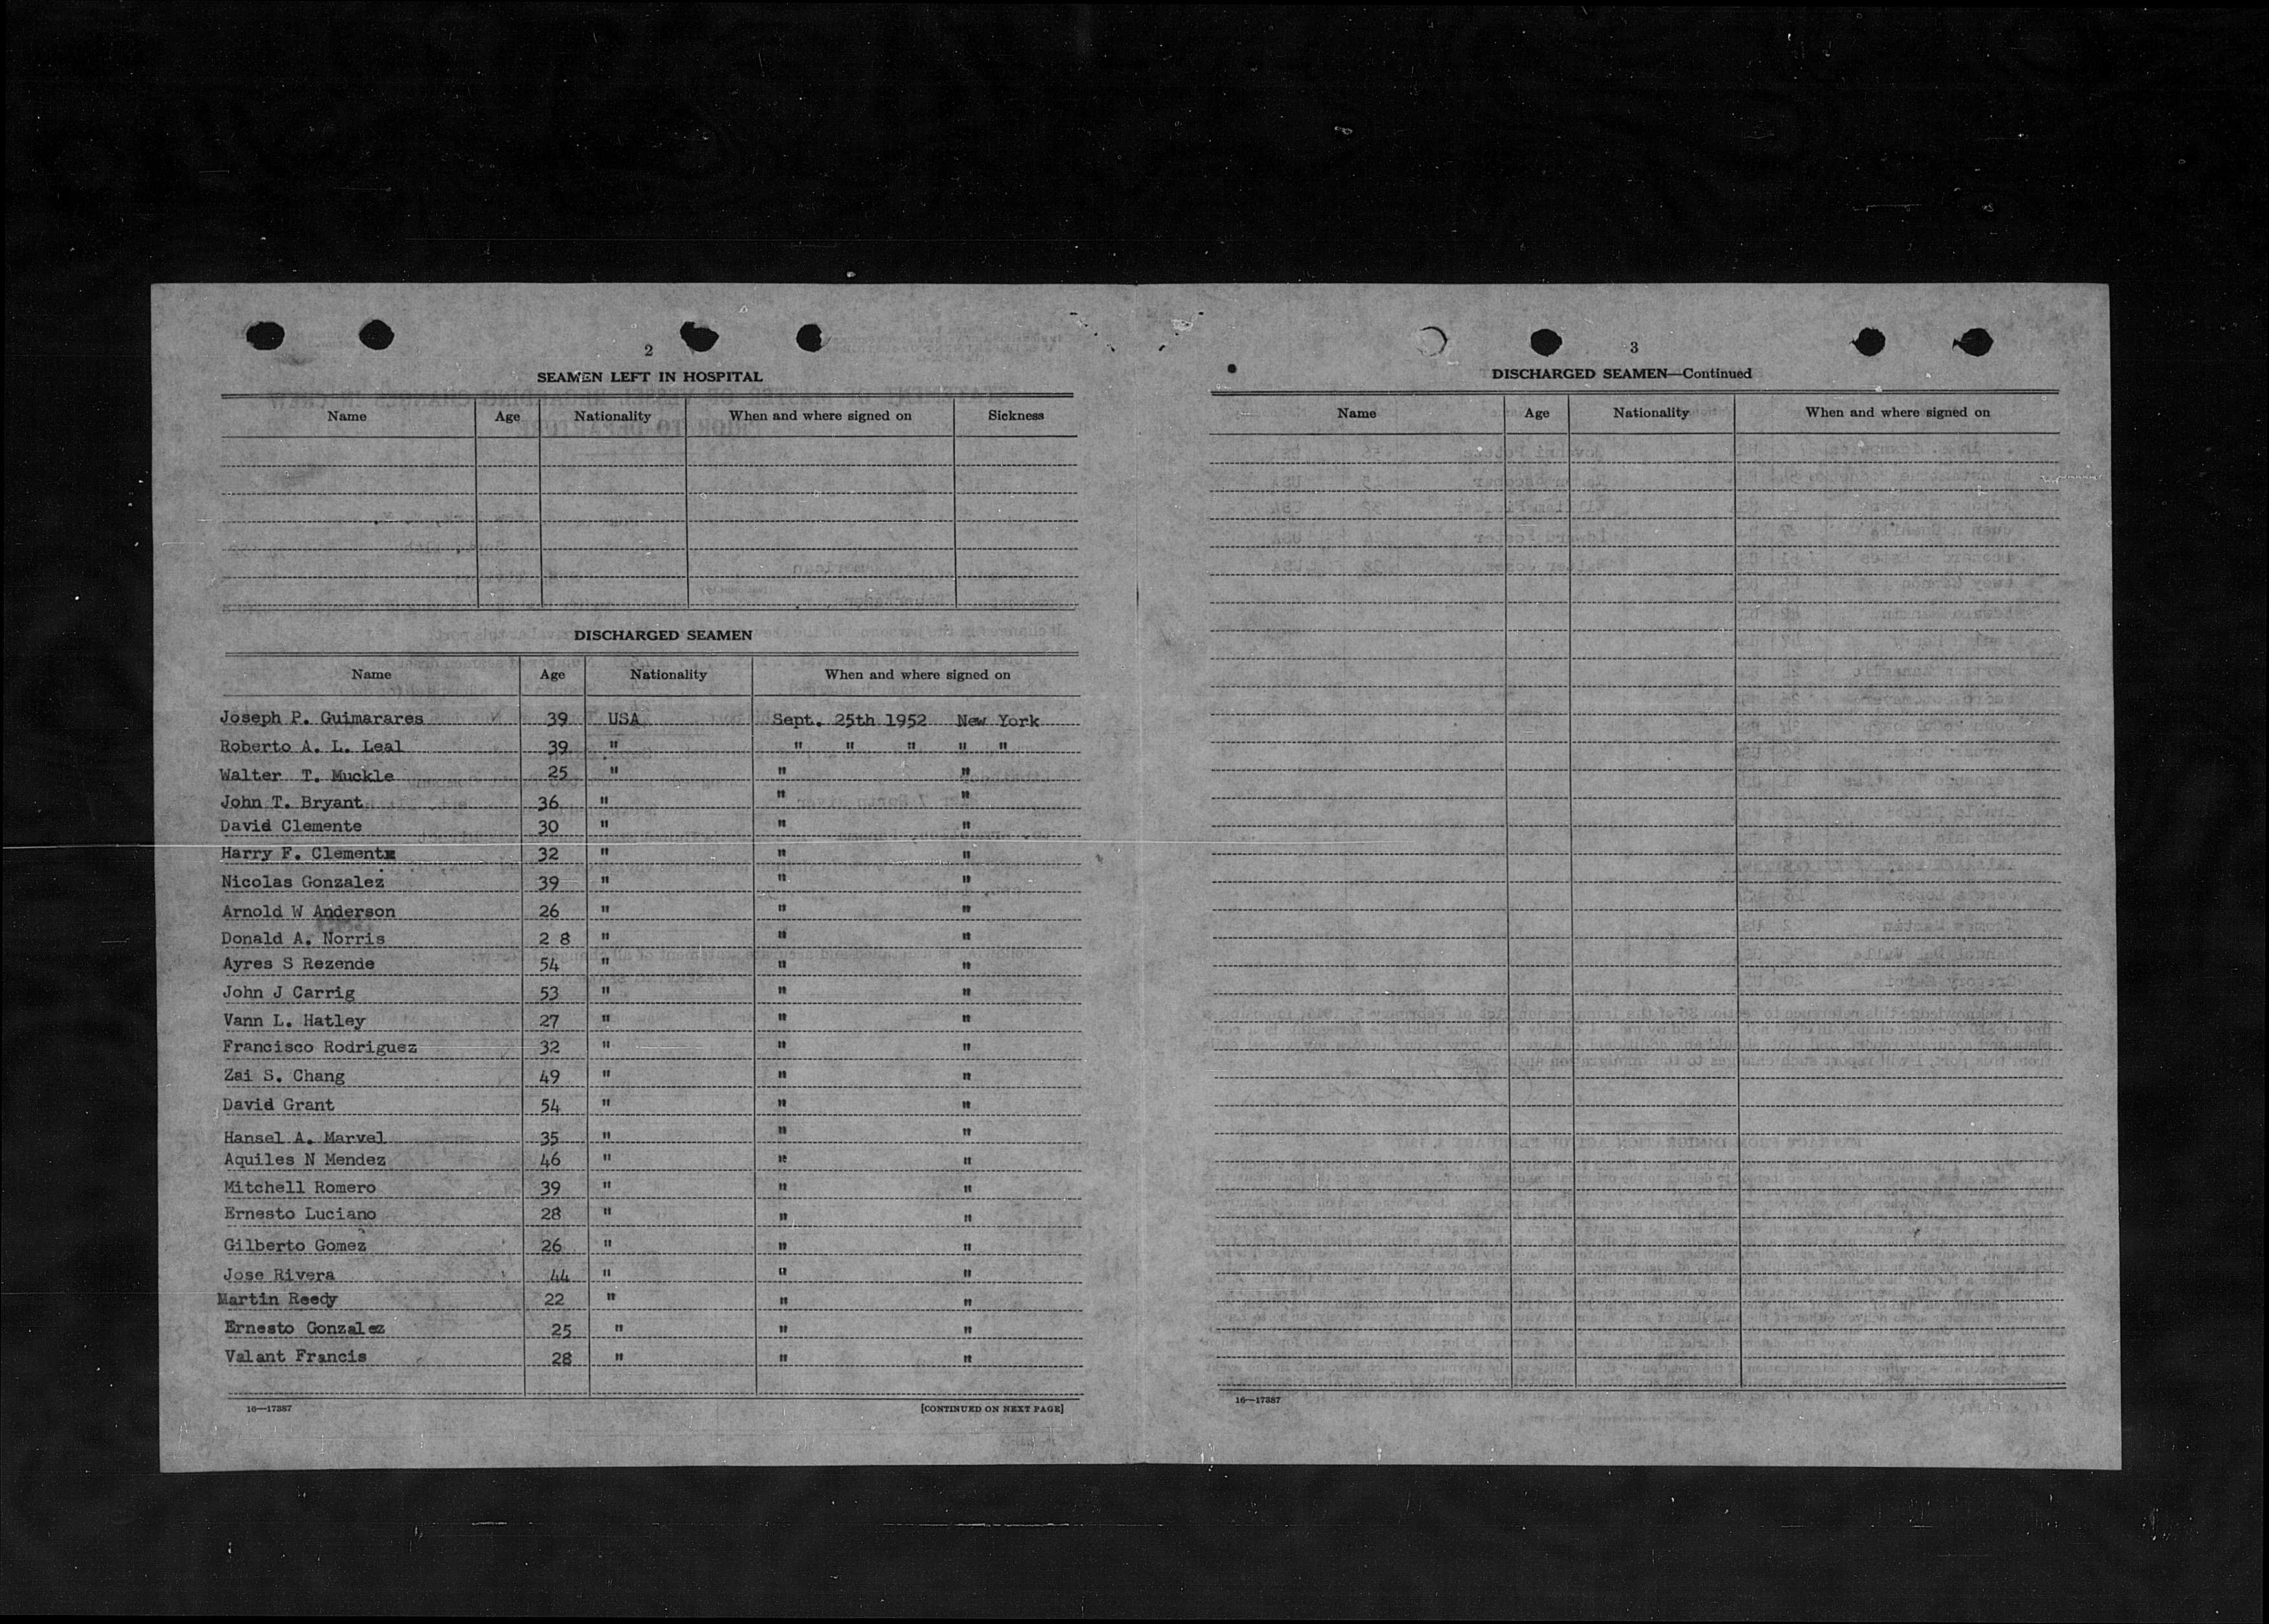 2
SEAMEN LEFT IN HOSPITAL
Name Age Nationality When and where signed on Sickness
DISCHARGED SEAMEN
Name Age Nationality When and where signed on
Joseph P. Guimarares 39 USA Sept. 25th 1952 New York
Roberto A. L. Leal 39 " " " " " "
Walter T. Muckle 25 " " "
John T. Bryant 36 " " "
David Clemente 30 " " "
Harry F. Clement 32 " " "
Nicolas Gonzalez 39 " " "
Arnold W Anderson 26 " " "
Donald A. Norris 2 8 " " "
Ayres S Rezende 54 " " "
John J Carrig 53 " " "
Vann L. Hatley 27 " " "
Francisco Rodriguez 32 " " "
Zai S. Chang 49 " " "
David Grant 54 " " "
Hansel A. Marvel 35 " " "
Aquiles N Mendez 46 " " "
Mitchell Romero 39 " " "
Ernesto Luciano 28 " " "
Gilberto Gomez 26 " " "
Jose Rivera 44 " " "
Martin Reedy 22 " " "
Ernesto Gonzalez 25 " " "
Valant Francis 28 " " "
16—17387 [CONTINUED ON NEXT PAGE]
3
DISCHARGED SEAMEN—Continued
Name Age Nationality When and where signed on
16—17387